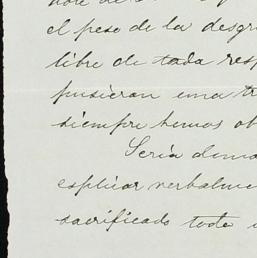 el peso de la desgr
libre de toda resp
pusieran una tr
siempre hemos ob
Sería dema
esplicar verbalme
sacrificado todo